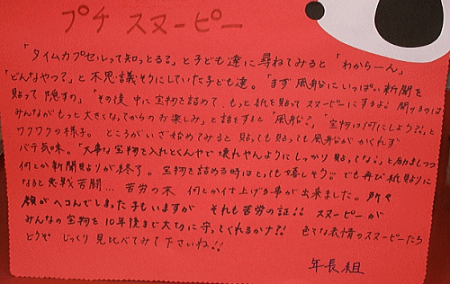 プチ スヌーピー
「タイムカプセルって知っとる?」と子ども達に尋ねてみると「わからーん」
「どんなやつ?」と不思議そうにしていた子ども達。「まず風船にいっぱい新聞を
貼って隠すの」「その後、中に宝物を詰めて、もっと紙を貼ってスヌーピーにするよ。開けるのは
みんながもっと大きくなってからのお楽しみ」と話をすると「風船?」「宝物は何にしよう?」と
ワクワクの様子。ところがいざ始めてみると貼っても貼っても風船がかくれず
バテ気味。「大事な宝物を入れとくんやで壊れんようにしっかり貼ってな」と励ましつつ
何とか新聞貼りが終了。宝物を詰める時はとっても嬉しそう。でも再び紙貼りに
なると悪戦苦闘… 苦労の末 何とか仕上げる事が出来ました。所々
顔がヘコんでしまった子もいますが それも苦労の証!! スヌーピーが
みんなの宝物を10年後まで大切に守ってくれるかナ?? 色んな表情のスヌーピーたち
どうぞ じっくり見比べてみて下さいね!!
年長組